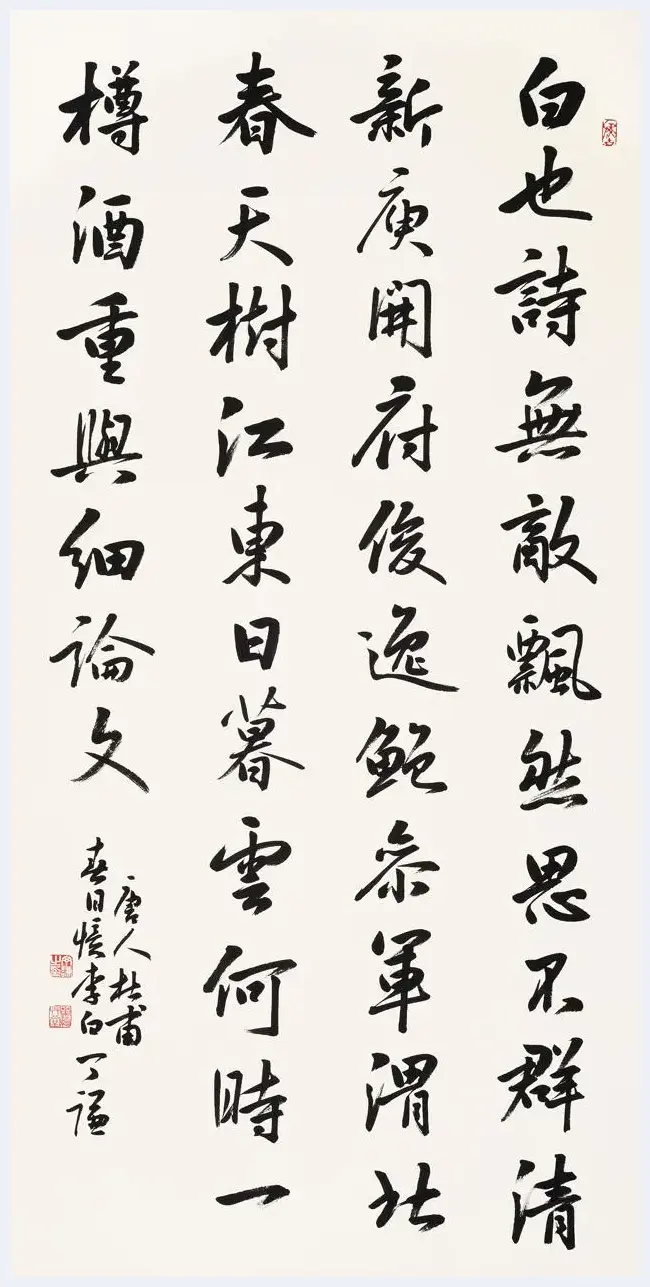 白也詩無敵飄然思不群清
新庾開府俊逸鮑參軍渭北
春天樹江東日暮雲何時一
樽酒重與細論文
唐人杜甫
春日憶李白丁謙